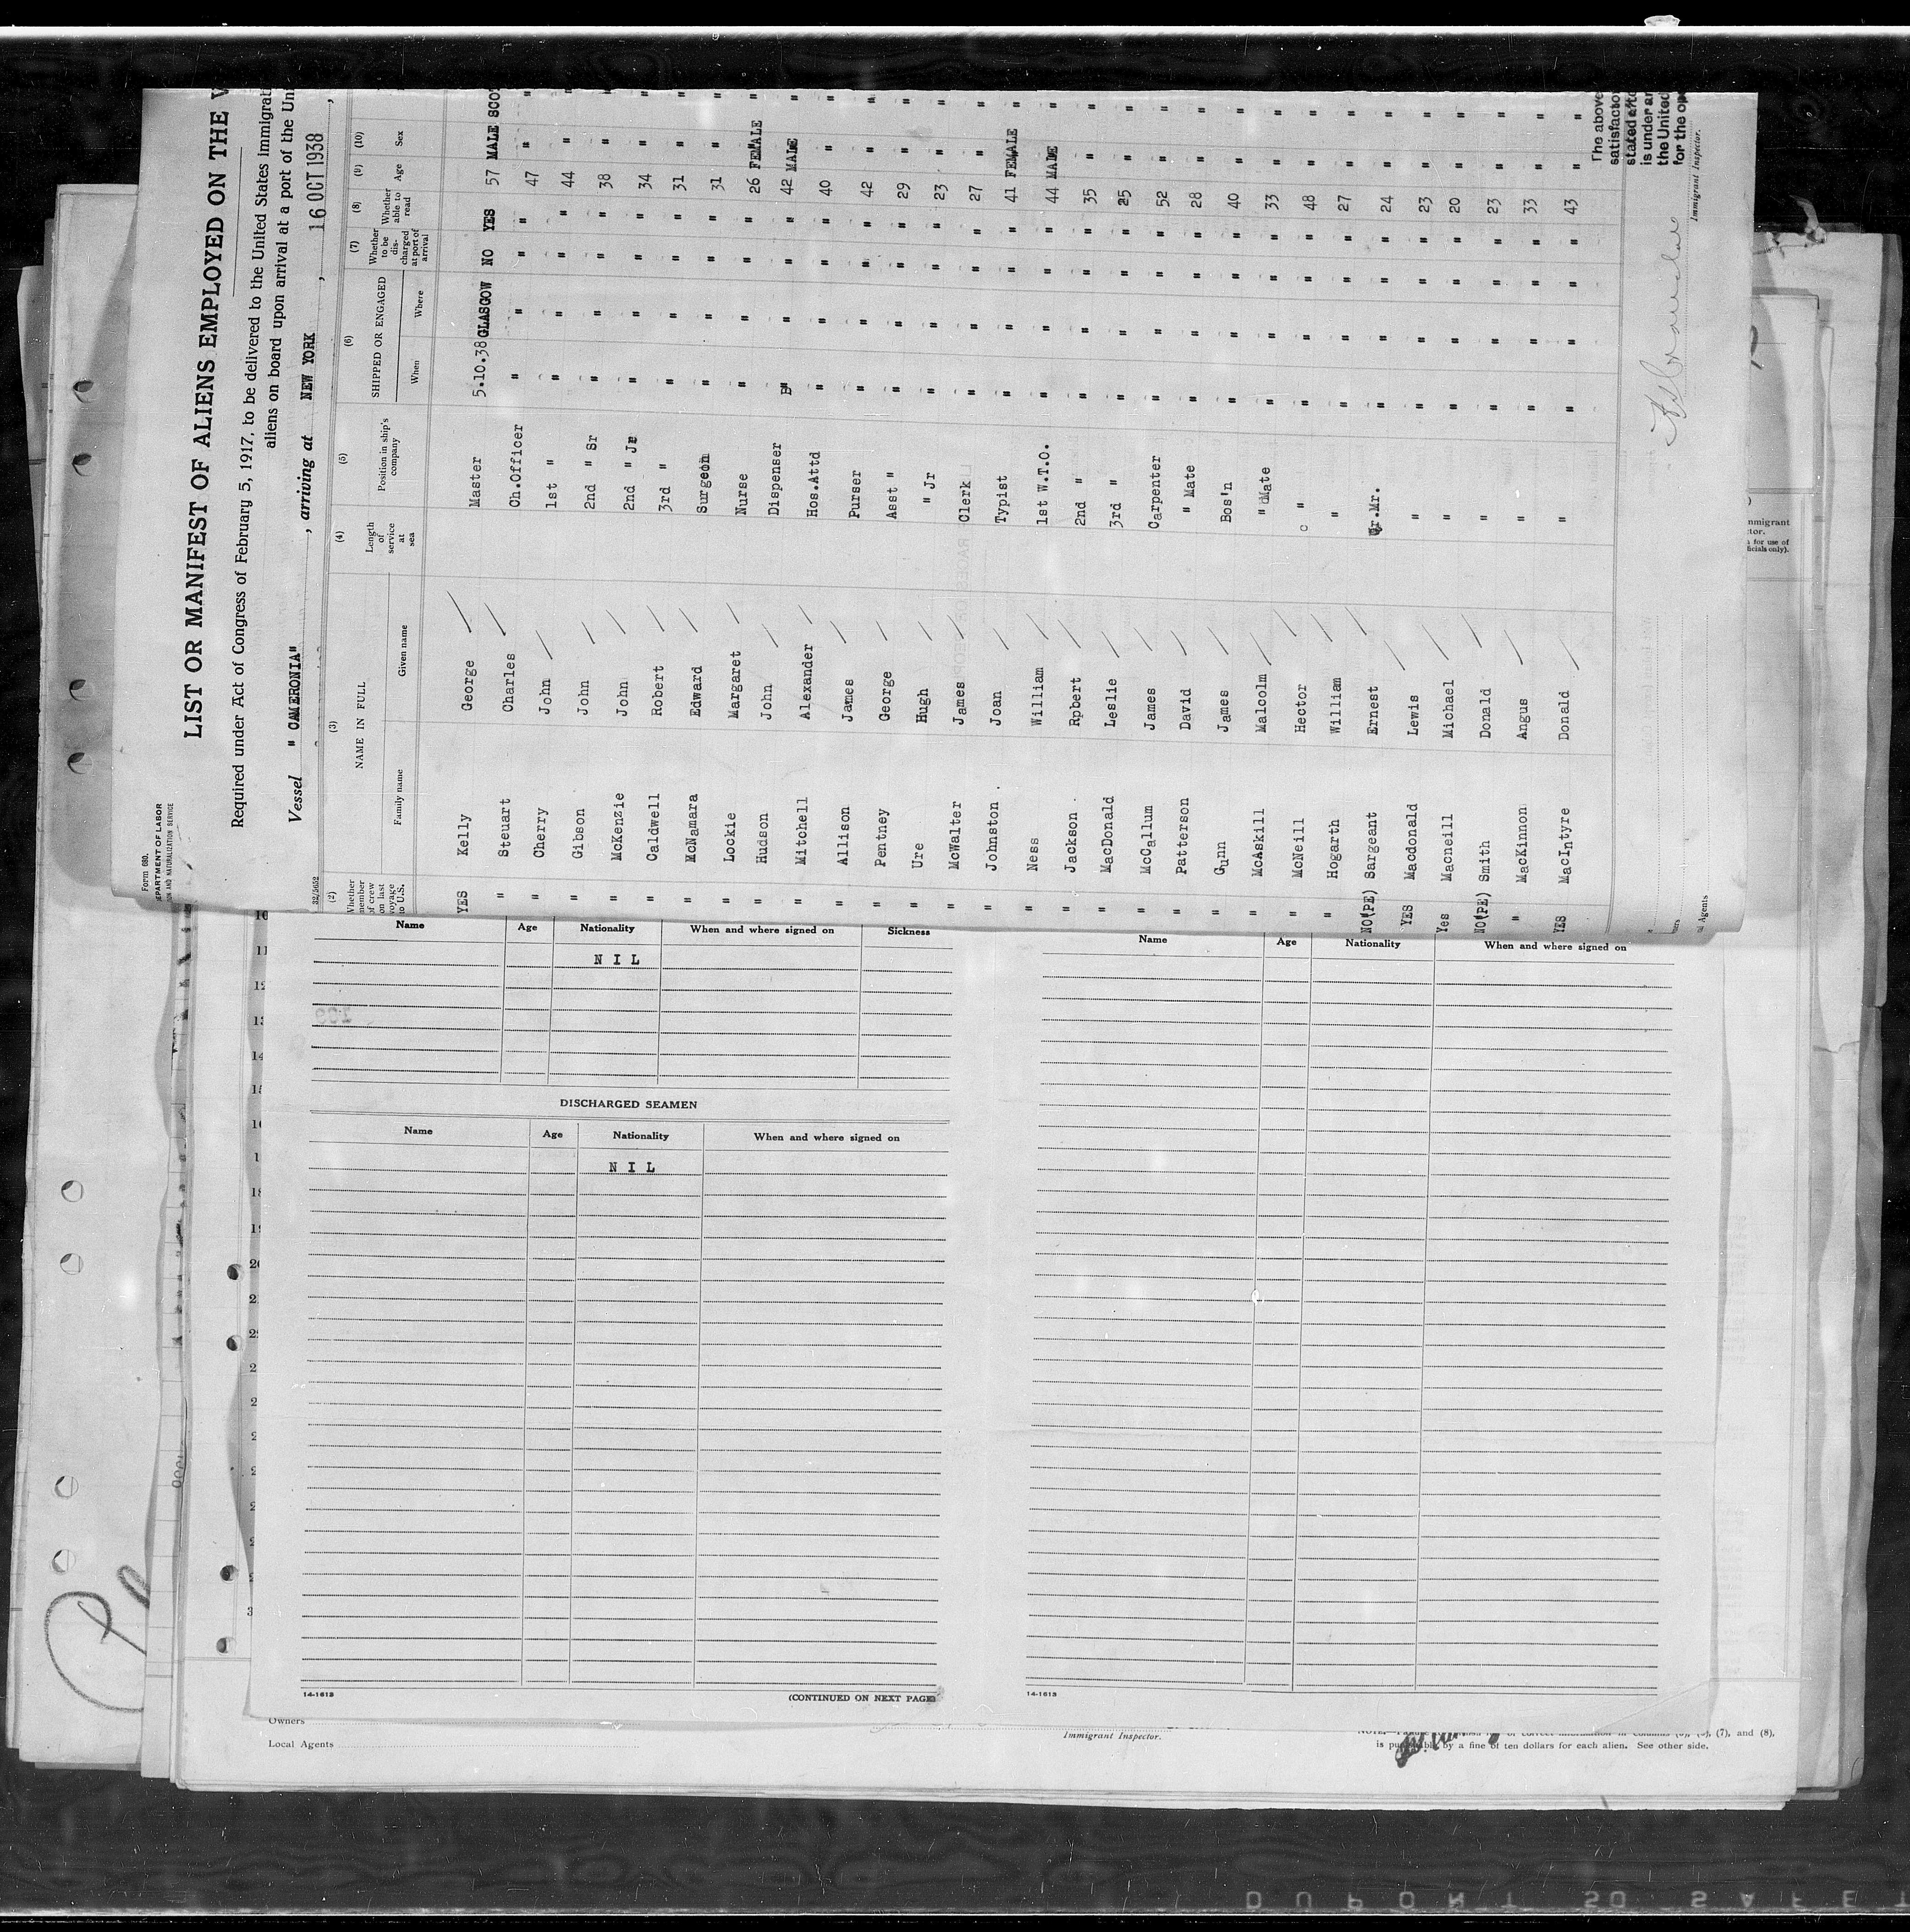 Form 680.
DEPARTMENT OF LABOR
ION AND NATURALIZATION SERVICE
LIST OR MANIFEST OF ALIENS EMPLOYED ON THE V
Required under Act of Congress of February 5, 1917, to be delivered to the United States immigrat
aliens on board upon arrival at a port of the Uni
Vessel "CAMERONIA" , arriving at NEW YORK , 16 OCT 1938 ,
32/5652
(2) (3) (4) (5) (6) (7) (8) (9) (10)
Whether member of crew on last voyage to U.S. NAME IN FULL Family name Given name Length of service at sea Position in ship's company SHIPPED OR ENGAGED When Where Whether to be discharged at port of arrival Whether able to read Age Sex
YES Kelly George Master 5.10.38 GLASGOW NO YES 57 MALE SCO
" Steuart Charles Ch.Officer " " " " 47 " "
" Cherry John 1st " " " " " 44 " "
" Gibson John 2nd " Sr " " " " 38 " "
" McKenzie John 2nd " Jr " " " " 34 " "
" Caldwell Robert 3rd " " " " " 31 " "
" McNamara Edward Surgeon " " " " 31 " "
" Lockie Margaret Nurse " " " " 26 FEMALE "
" Hudson John Dispenser " " " " 42 MALE "
" Mitchell Alexander Hos.Attd " " " " 40 " "
" Allison James Purser " " " " 42 " "
" Pentney George Asst " " " " " 29 " "
" Ure Hugh " Jr " " " " 23 " "
" McWalter James Clerk " " " " 27 " "
" Johnston . Joan Typist " " " " 41 FEMALE "
" Ness William 1st W.T.O. " " " " 44 MALE "
" Jackson . Rpbert 2nd " " " " " 35 " "
" MacDonald Leslie 3rd " " " " " 25 " "
" McCallum James Carpenter " " " " 52 " "
" Patterson David " Mate " " " " 28 " "
" Gunn James Bos'n " " " " 40 " "
" McAskill Malcolm " Mate " " " " 33 " "
" McNeill Hector " " " " " 48 " "
" Hogarth William " " " " " 27 " "
NO(PE) Sargeant Ernest Qr.Mr. " " " " 24 " "
YES Macdonald Lewis " " " " " 23 " "
Yes Macneill Michael " " " " " 20 " "
NO(PE) Smith Donald " " " " " 23 " "
" MacKinnon Angus " " " " " 33 " "
YES MacIntyre Donald " " " " " 43 " "
The above
satisfacto
stated
is under a
the United
for the op
Immigrant Inspector.
Agents
mmigrant
tor.
for use of
ficials only).
10
11
12
13
14
15
18
20
Name Age Nationality When and where signed on Sickness
NIL
DISCHARGED SEAMEN
Name Age Nationality When and where signed on
NIL
14-1613 (CONTINUED ON NEXT PAGE)
Name Age Nationality When and where signed on
14-1613
Owners
Local Agents
Immigrant Inspector.
(7), and (8),
by a fine of ten dollars for each alien. See other side.
DUPONT SAFET